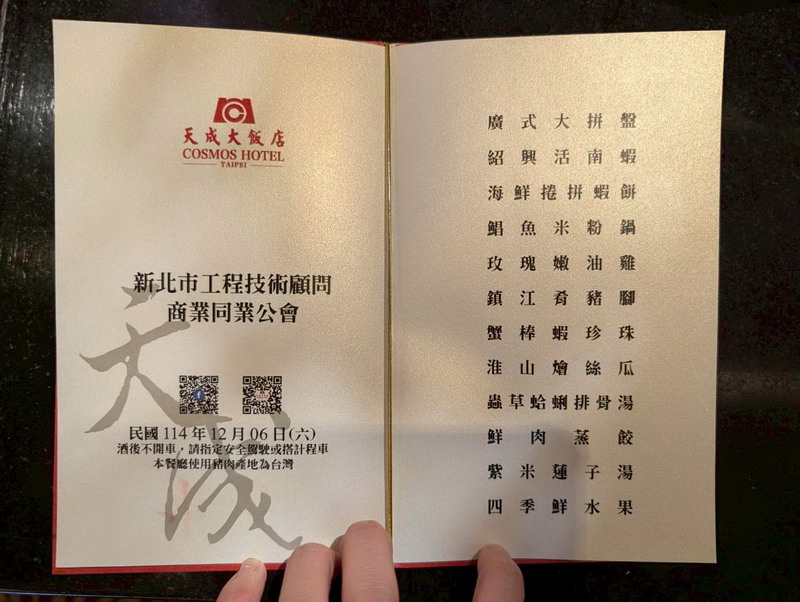 天成大飯店
COSMOS HOTEL
TAIPEI
新北市工程技術顧問
商業同業公會
天成
民國 114 年 12 月 06 日(六)
酒後不開車，請指定安全駕駛或搭計程車
本餐廳使用豬肉產地為台灣
廣式大拼盤
紹興活南蝦
海鮮捲拼蝦餅
鯧魚米粉鍋
玫瑰嫩油雞
鎮江肴豬腳
蟹棒蝦珍珠
淮山燴絲瓜
蟲草蛤蜊排骨湯
鮮肉蒸餃
紫米蓮子湯
四季鮮水果